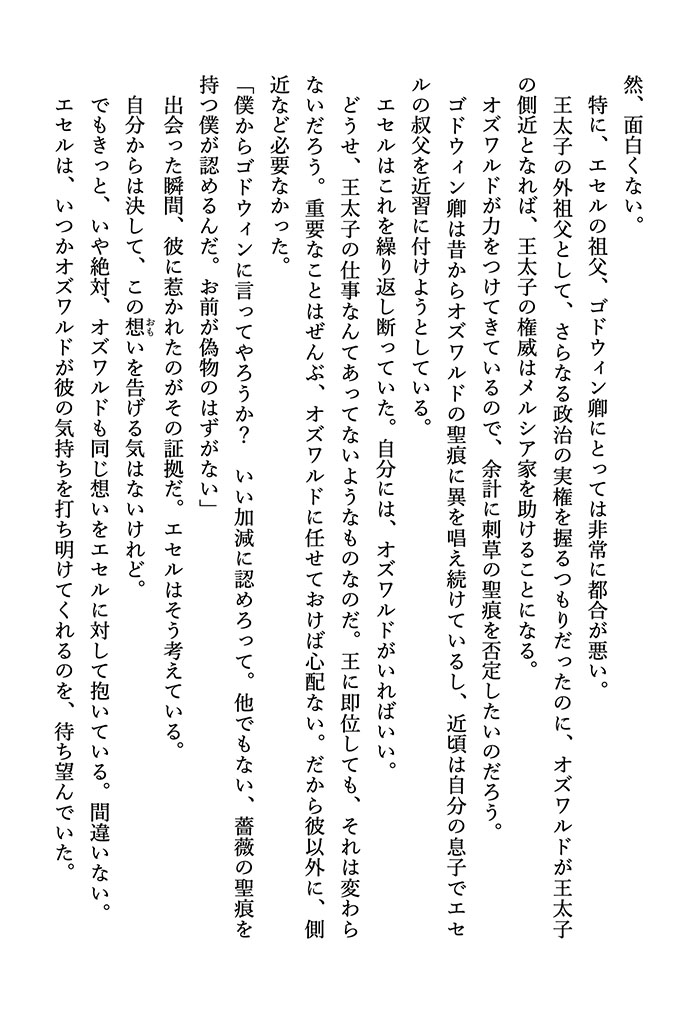 然、面白くない。
特に、エセルの祖父、ゴドウィン卿にとっては非常に都合が悪い。
王太子の外祖父として、さらなる政治の実権を握るつもりだったのに、オズワルドが王太子
の側近となれば、王太子の権威はメルシア家を助けることになる。
オズワルドが力をつけてきているので、余計に刺草の聖痕を否定したいのだろう。
ゴドウィン卿は昔からオズワルドの聖痕に異を唱え続けているし、近頃は自分の息子でエセ
ルの叔父を近習に付けようとしている。
エセルはこれを繰り返し断っていた。自分には、オズワルドがいればいい。
どうせ、王太子の仕事なんてあってないようなものなのだ。王に即位しても、それは変わら
ないだろう。重要なことはぜんぶ、オズワルドに任せておけば心配ない。だから彼以外に、側
近など必要なかった。
「僕からゴドウィンに言ってやろうか？　いい加減に認めろって。他でもない、薔薇の聖痕を
持つ僕が認めるんだ。お前が偽物のはずがない」
出会った瞬間、彼に惹かれたのがその証拠だ。エセルはそう考えている。
自分からは決して、この想いを告げる気はないけれど。
おも
でもきっと、いや絶対、オズワルドも同じ想いをエセルに対して抱いている。間違いない。
エセルは、いつかオズワルドが彼の気持ちを打ち明けてくれるのを、待ち望んでいた。